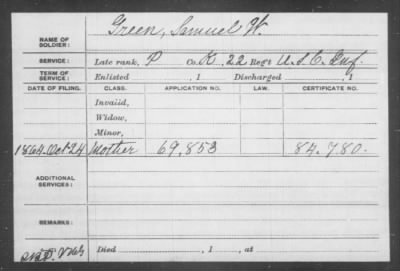 NAME OF SOLDIER: Green, Samuel W.
SERVICE: Late rank, P Co. K, 22 Reg't U.S.C. Inf.
TERM OF SERVICE: Enlisted , 1 Discharged , 1
DATE OF FILING. CLASS. APPLICATION NO. LAW. CERTIFICATE NO.
Invalid,
Widow,
Minor,
1864 Oct 24 Mother 69,853 84,780.
ADDITIONAL SERVICES:
REMARKS:
Died , 1 , at